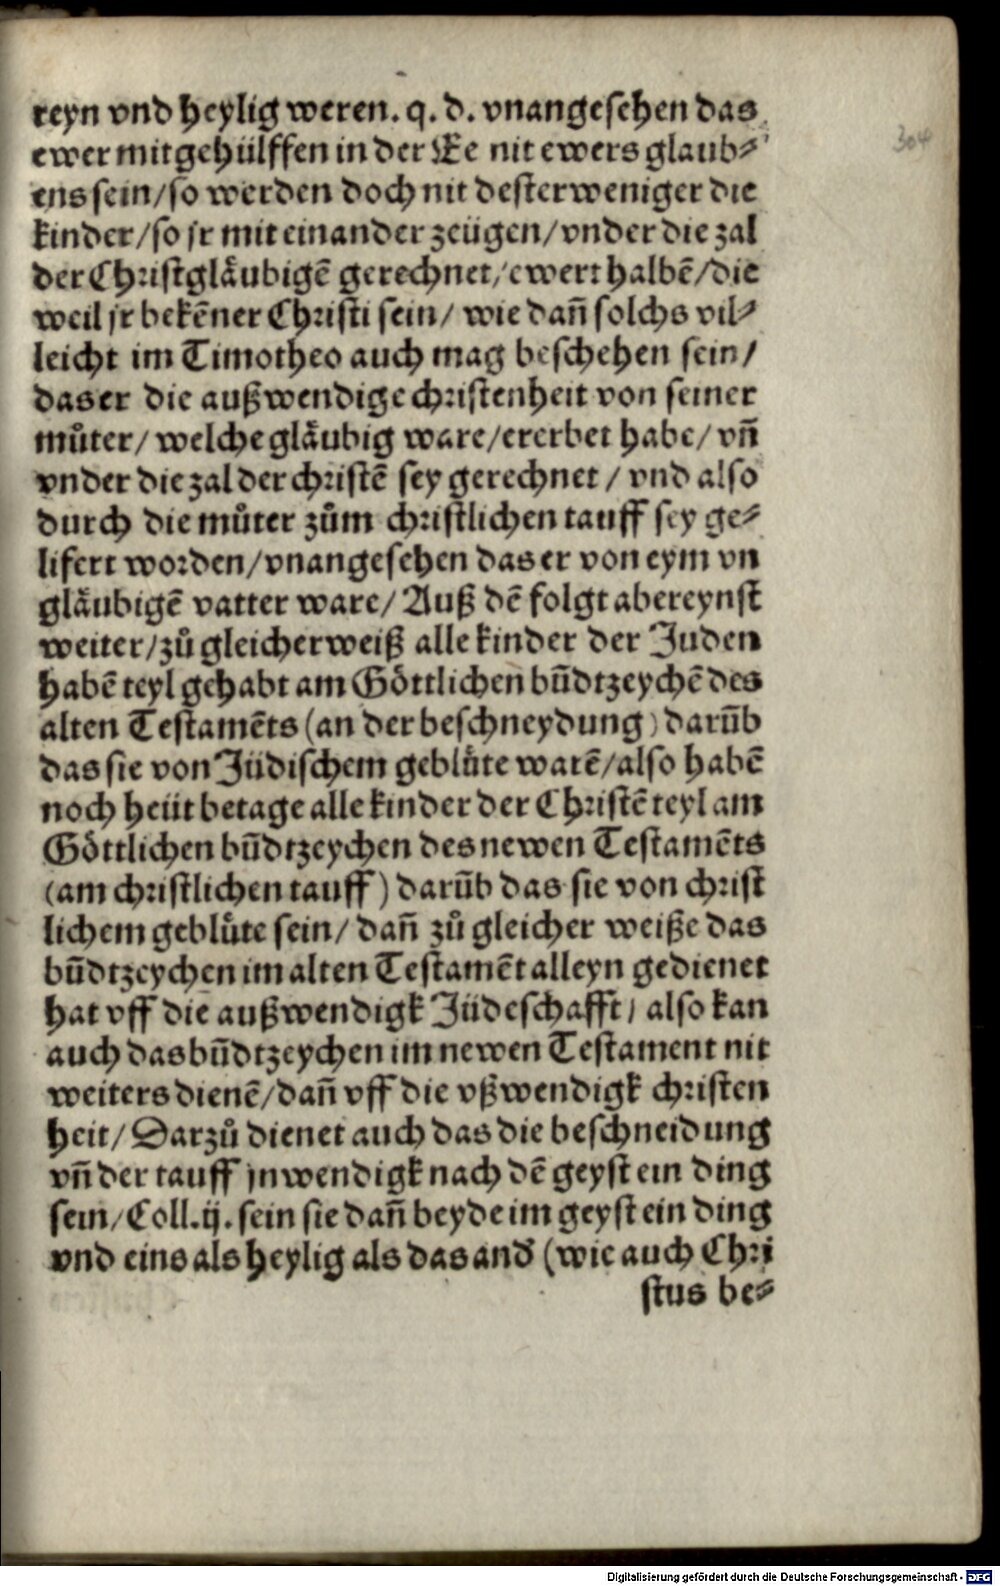 reyn vnd heylig weren. q. d. vnangesehen das
ewer mitgehülffen in der Ee nit ewers glaub⸗
ens sein/so werden doch nit dester weniger die
kinder/so jr mit einander zeügen/vnder die zal
der Christglåubigē gerechnet/ewert halbē/die
weil jr bekēner Christi sein/ wie dañ solchs vil⸗
leicht im Timotheo auch mag beschehen sein/
das er die außwendige christenheit von seiner
můter/ welche glåubig ware/ererbet habe/ vñ
vnder die zal der christē sey gerechnet / vnd also
durch die můter zům christlichen tauff sey ge⸗
lifert worden/vnangesehen das er von eym vn
glåubigē vatter ware/ Auß dē folgt abereynst
weiter/zů gleicherweiß alle kinder der Juden
habē teyl gehabt am Göttlichen būdtzeychē des
alten Testamēts (an der beschneydung) darūb
das sie von Jüdischem geblůte warē/also habē
noch heüt betage alle kinder der Christē teyl am
Göttlichen būdtzeychen des newen Testamēts
(am christlichen tauff) darūb das sie von christ
lichem geblůte sein/ dañ zů gleicher weiße das
būdtzeychen im alten Testamēt alleyn gedienet
hat vff die außwendigk Jüdeschafft/ also kan
auch das būdtzeychen im newen Testament nit
weiters dienē/dañ vff die vßwendigk christen
heit/ Darzů dienet auch das die beschneidung
vñ der tauff jnwendigk nach dē geyst ein ding
sein/Coll.ij. sein sie dañ beyde im geyst ein ding
vnd eins als heylig als das and' (wie auch Chri
stus be⸗
304
Digitalisierung gefördert durch die Deutsche Forschungsgemeinschaft - DFG